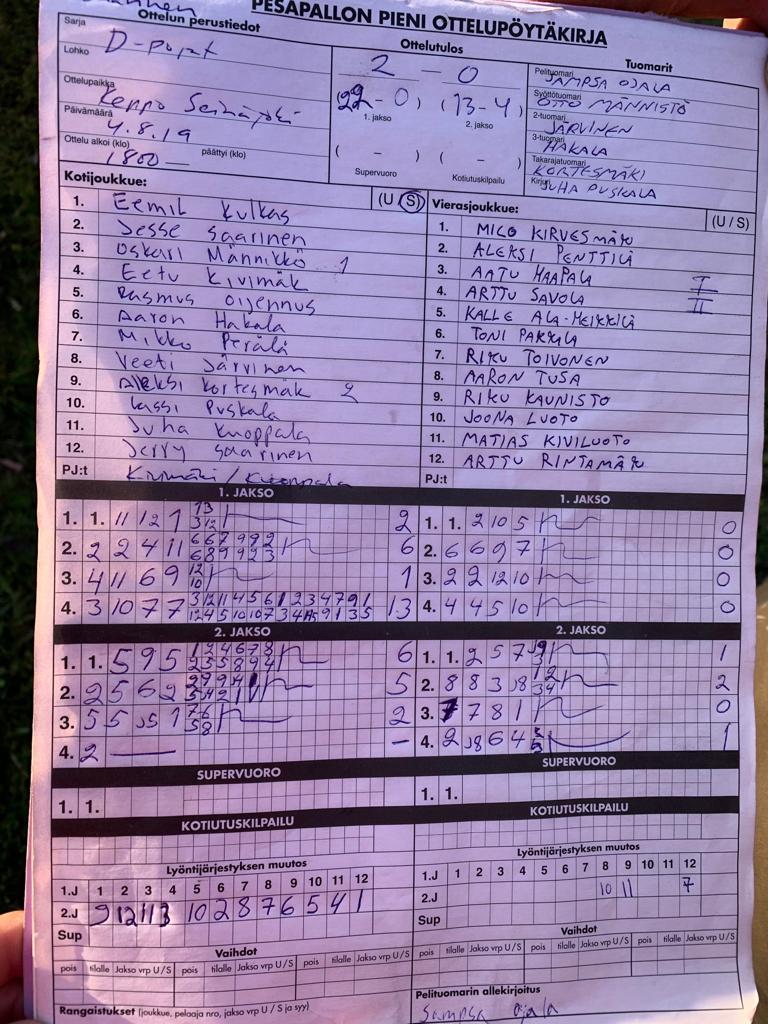 PESÄPALLON PIENI OTTELUPÖYTÄKIRJA
Ottelun perustiedot
Sarja
D-pojat
Lohko
Ottelupaikka
Keppo Seinäjoki
Päivämäärä
4.8.19
Ottelu alkoi (klo) päättyi (klo)
1800
Ottelutulos
2 - 0
(22-0) (13-4)
1. jakso 2. jakso
( - ) ( - )
Supervuoro Kotiutuskilpailu
Tuomarit
Pelituomari
SAMPSA OJALA
Syöttötuomari
OTTO MÄNNISTÖ
2-tuomari
JÄRVINEN
3-tuomari
HAKALA
Takarajatuomari
KORTESMÄKI
Kirjuri
JUHA PUSKALA
Kotijoukkue: (U S)
1. Eemil Kulkas
2. Jesse Saarinen
3. Oskari Männikkö 1
4. Eetu Kivimäk
5. Rasmus Oijennus
6. Aaron Hakala
7. Mikko Perälä
8. Veeti Järvinen
9. Aleksi Kortesmäk 2
10. Lassi Puskala
11. Juha Knoppala
12. Jerry Saarinen
PJ:t
Vierasjoukkue: (U / S)
1. MILO KIRVESMÄKI
2. ALEKSI PENTTILÄ
3. AATU HAAPALA I
4. ARTTU SAVOLA II
5. KALLE ALA-HEIKKILÄ
6. TONI PAKKALA
7. RIKU TOIVONEN
8. AARON TUSA
9. RIKU KAUNISTO
10. JOONA LUOTO
11. MATIAS KIVILUOTO
12. ARTTU RINTAMÄKI
PJ:t
1. JAKSO
1. 1. 11 12 1 2
2. 2 2 4 11 6
3. 4 11 6 9 12 10 1
4. 3 10 7 7 13
1. JAKSO
1. 1. 2 10 5 0
2. 6 6 9 7 0
3. 2 2 12 10 0
4. 4 4 5 10 0
2. JAKSO
1. 1. 5 9 5 6
2. 2 5 6 2 5
3. 5 5 J5 1 2
4. 2 –
2. JAKSO
1. 1. 2 5 7 1
2. 8 8 3 J8 2
3. 7 7 8 1 0
4. 2 J8 6 4 1
SUPERVUORO
1. 1.
SUPERVUORO
1. 1.
KOTIUTUSKILPAILU
KOTIUTUSKILPAILU
Lyöntijärjestyksen muutos
1.J 1 2 3 4 5 6 7 8 9 10 11 12
2.J 9 12 11 3 10 2 8 7 6 5 4 1
Sup
Lyöntijärjestyksen muutos
1.J 1 2 3 4 5 6 7 8 9 10 11 12
2.J 10 11 7
Sup
Vaihdot
pois tilalle Jakso vrp U / S pois tilalle Jakso vrp U / S pois tilalle Jakso vrp U / S
Vaihdot
pois tilalle Jakso vrp U / S pois tilalle Jakso vrp U / S pois tilalle Jakso vrp U / S
Rangaistukset (joukkue, pelaaja nro, jakso vrp U / S ja syy)
Pelituomarin allekirjoitus
Sampsa Ojala